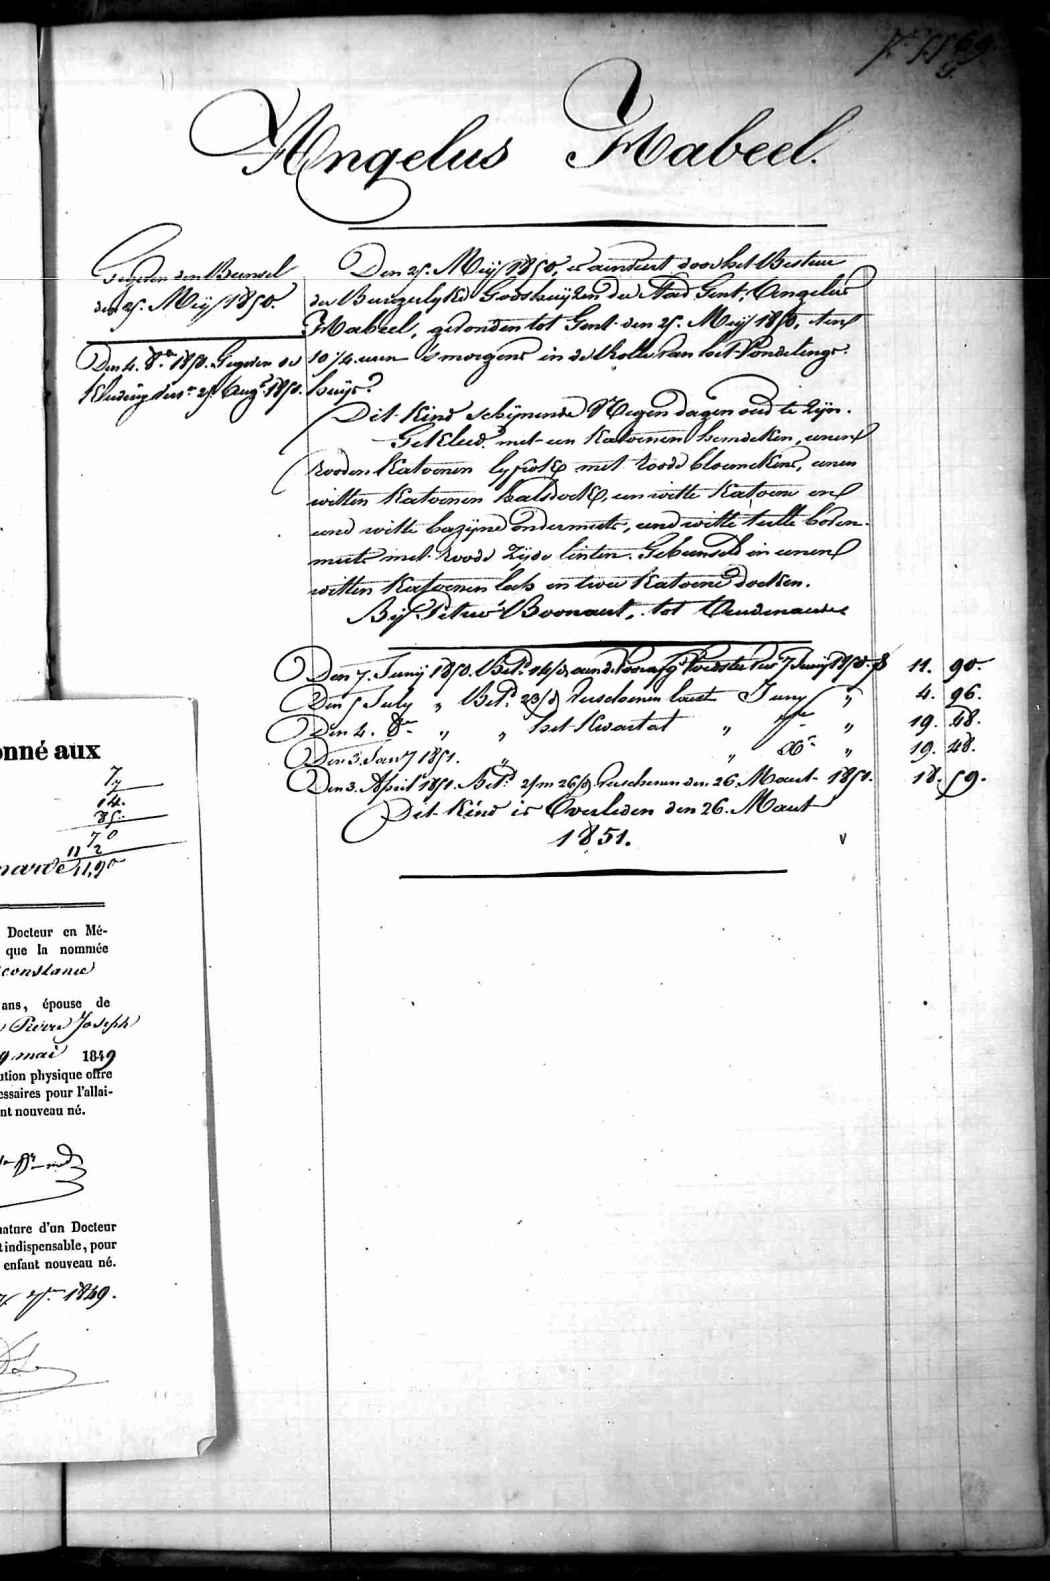 Angelus Mabeel.
Gegeven den Bunsel
den 25. Meij 1850.
Den 4. 8.re 1850. Gegeven de
Kleeding dus.r 25. Aug.t 1850.
Den 25. Meij 1850, is aenveert door het Bestuur
der Burgerlyke Godshuijzen der Stad Gent, Angelus
Mabeel, gevonden tot Gent den 25. Meij 1850, ten
10 1/4 uren 's morgens in de Rolle van het Vondelinge-
huijs.
Dit Kind schijnende Negen dagen oud te Zijn.
Gekleed met een Katoenen hemdeken, eenen
rooden Katoenen lyfrok met roode bloemekens, eenen
witten Katoenen halsdoek, een witte Katoene en
eene witte bazijne ondermuts, eene witte tulle boven-
muts met roode Zijde linten. Gebunseld in eenen
witten Katoenen lecs en twee Katoene doeken.
Bij Petrus Boonaert, tot Audenaerde
Den 7. Junij 1850. Bet.d 14/d 7 Junij 1850. f 11. 90.
Den 5 July " Bet.d 23/d verschenen laest Juny " 4. 96.
Den 4. 8.re " " het Kwartael " 7.re " 19. 48.
Den 3. Jan.y 1851. " " X.re " 19. 48.
Den 3. April 1851. Bet.d 2/m 26/d verschenen den 26. Maert 1851. 18. 59.
Dit Kind is Overleden den 26. Maert
1851.
onné aux
14.
35.
70
11 2
11,90
Docteur en Mé-
que la nommée
constance
ans, épouse de
Pierre Joseph
9 mai 1849
ution physique offre
essaires pour l'allai-
nt nouveau né.
nature d'un Docteur
t indispensable, pour
enfant nouveau né.
7.re 1849.